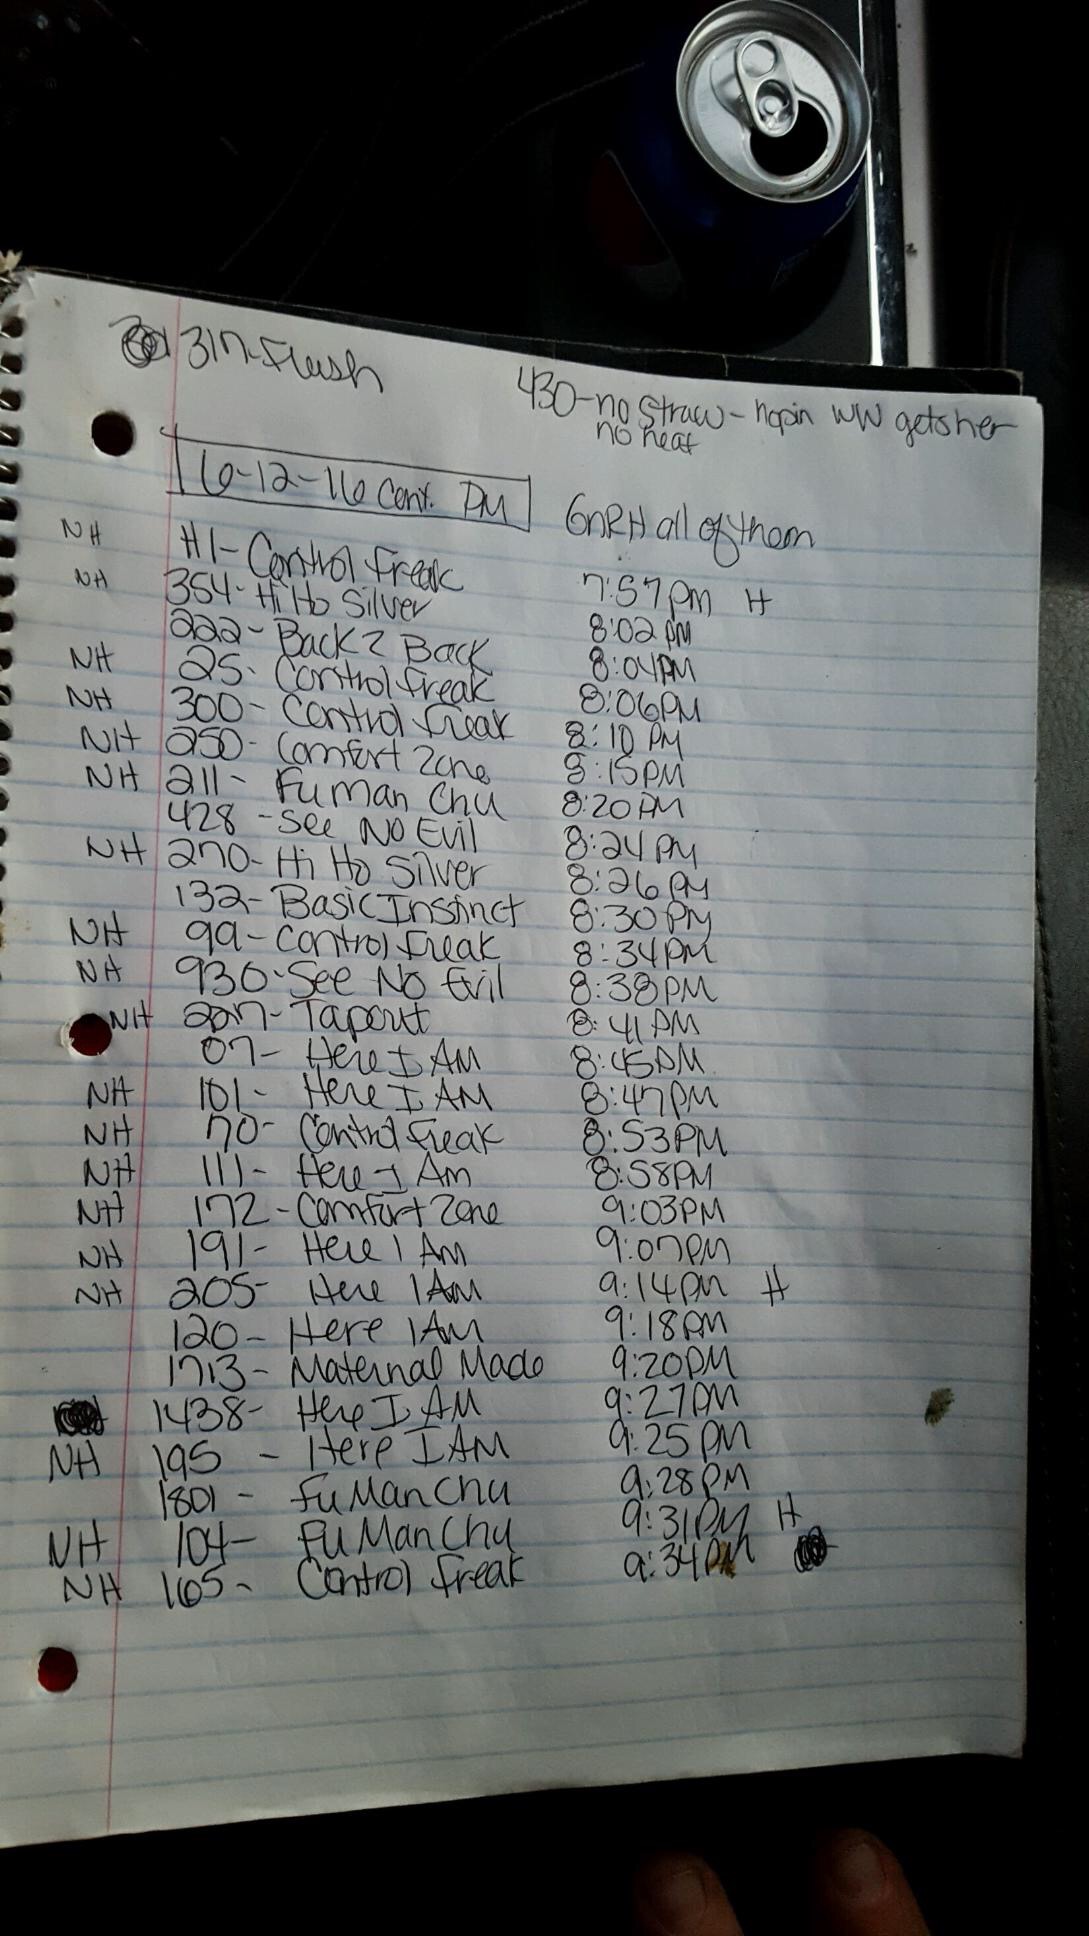 317-Flush
430-no straw - hopin WW gets her
no heat
6-12-16 Cont. PM
GnRH all of them
NH #1- Control Freak 7:57PM H
NH 354- Hi Ho Silver 8:02PM
222- Back 2 Back 8:04PM
NH 25- Control Freak 8:06PM
NH 300- Control Freak 8:10 PM
NH 250- Comfort Zone 8:15PM
NH 211- Fu Man Chu 8:20PM
428 - See No Evil 8:24PM
NH 270- Hi Ho Silver 8:26PM
132- Basic Instinct 8:30PM
NH 99- Control Freak 8:34PM
NH 930- See No Evil 8:38PM
NH Tapout 8:41PM
07- Here I AM 8:45PM
NH 101- Here I AM 8:47PM
NH 70- Control Freak 8:53PM
NH 111- Here I Am 8:58PM
NH 172- Comfort Zone 9:03PM
NH 191- Here I AM 9:07PM
NH 205- Here I AM 9:14PM H
120- Here I AM 9:18PM
1713- Maternal Made 9:20PM
1438- Here I AM 9:27PM
NH 195 - Here I AM 9:25PM
1801- Fu Man Chu 9:28PM
NH 104- Fu Man Chu 9:31PM H
NH 165- Control Freak 9:34PM